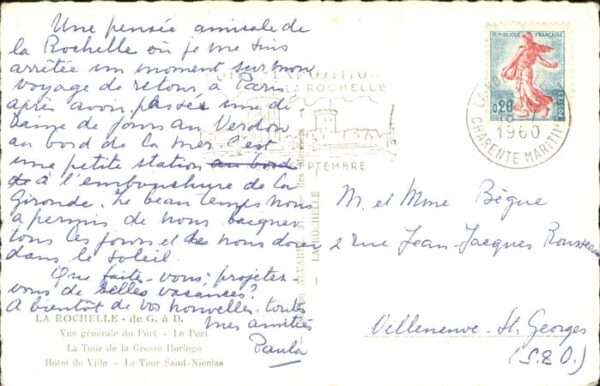 Une pensée amicale de
la Rochelle où je me suis
arrêtée un moment sur mon
voyage de retour à Paris
après avoir passée une di
zaine de jours au Verdon
au bord de la mer. C'est
une petite station au bord
de à l'embouchure de la
Gironde. Le beau temps nous
a permis de nous baigner
tous les jours et de nous dorer
dans le soleil.
Que faites-vous; projetez-
vous de belles vacances?
A bientôt de vos nouvelles. toutes
mes amitiés
Paulo
LA ROCHELLE - de G. à D.
Vue générale du Port - Le Port
La Tour de la Grosse Horloge
Hôtel de Ville - La Tour Saint-Nicolas
EXPOSITION
LA ROCHELLE
SEPTEMBRE
LA ROCHELLE
REPUBLIQUE FRANÇAISE
0,20
POSTES
1960
CHARENTE MARITIME
M. et Mme Bègue
2 rue Jean-Jacques Rousseau
Villeneuve-St. Georges
(S.&O.)